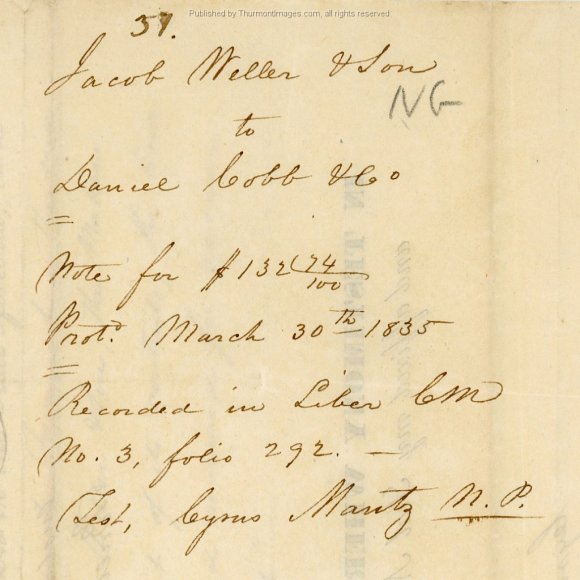 Published by ThurmontImages.com, all rights reserved.
37.
Jacob Weller & Son
NG
to
Daniel Cobb & Co
Note for $132 24/100
Prot.d March 30th 1835
Recorded in Liber CM
No. 3, folio 292. —
Test, Cyrus Mantz N. P.